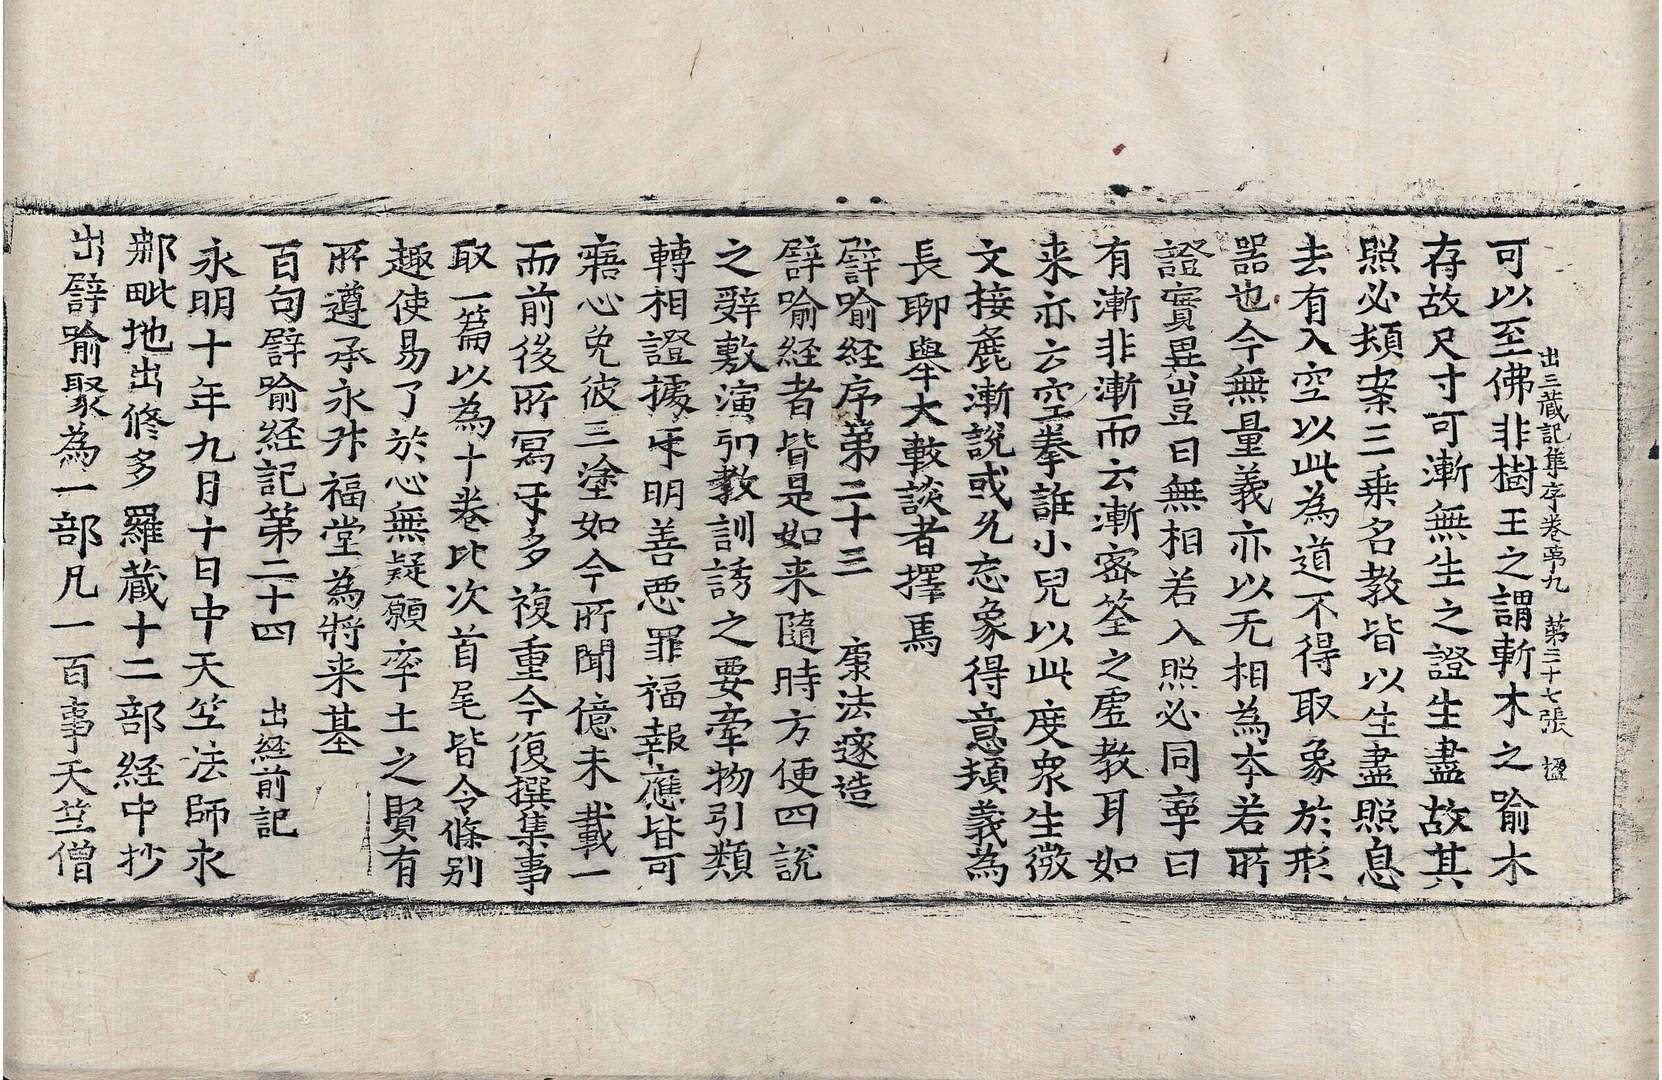 出三蔵記集序卷苐九　第三十七張　楹
可以至佛非樹王之謂斬木之喻木
存故尺寸可漸無生之證生盡故其
照必頓案三乗名教皆以生盡照息
去有入空以此為道不得取象於形
器也今無量義亦以无相為本若所
證實異豈曰無相若入照必同寧曰
有漸非漸而云漸密筌之虛教耳如
来亦云空拳誑小兒以此度衆生微
文接麁漸說或允忘象得意頓義為
長聊舉大較談者擇焉
譬喻経序第二十三　　康法邃造
譬喻経者皆是如来隨時方便四說
之辤敷演引教訓誘之要牽物引類
轉相證據互明善惡罪福報應皆可
寤心免彼三塗如今所聞億未載一
而前後所寫互多複重今復撰集事
取一篇以為十卷比次首尾皆令條别
趣使易了於心無疑願率土之賢有
所遵承永升福堂為將来基
百句譬喻経記第二十四　　出経前記
永明十年九月十日中天竺法師求
那毗地出修多羅蔵十二部経中抄
出譬喻聚為一部凡一百事天竺僧